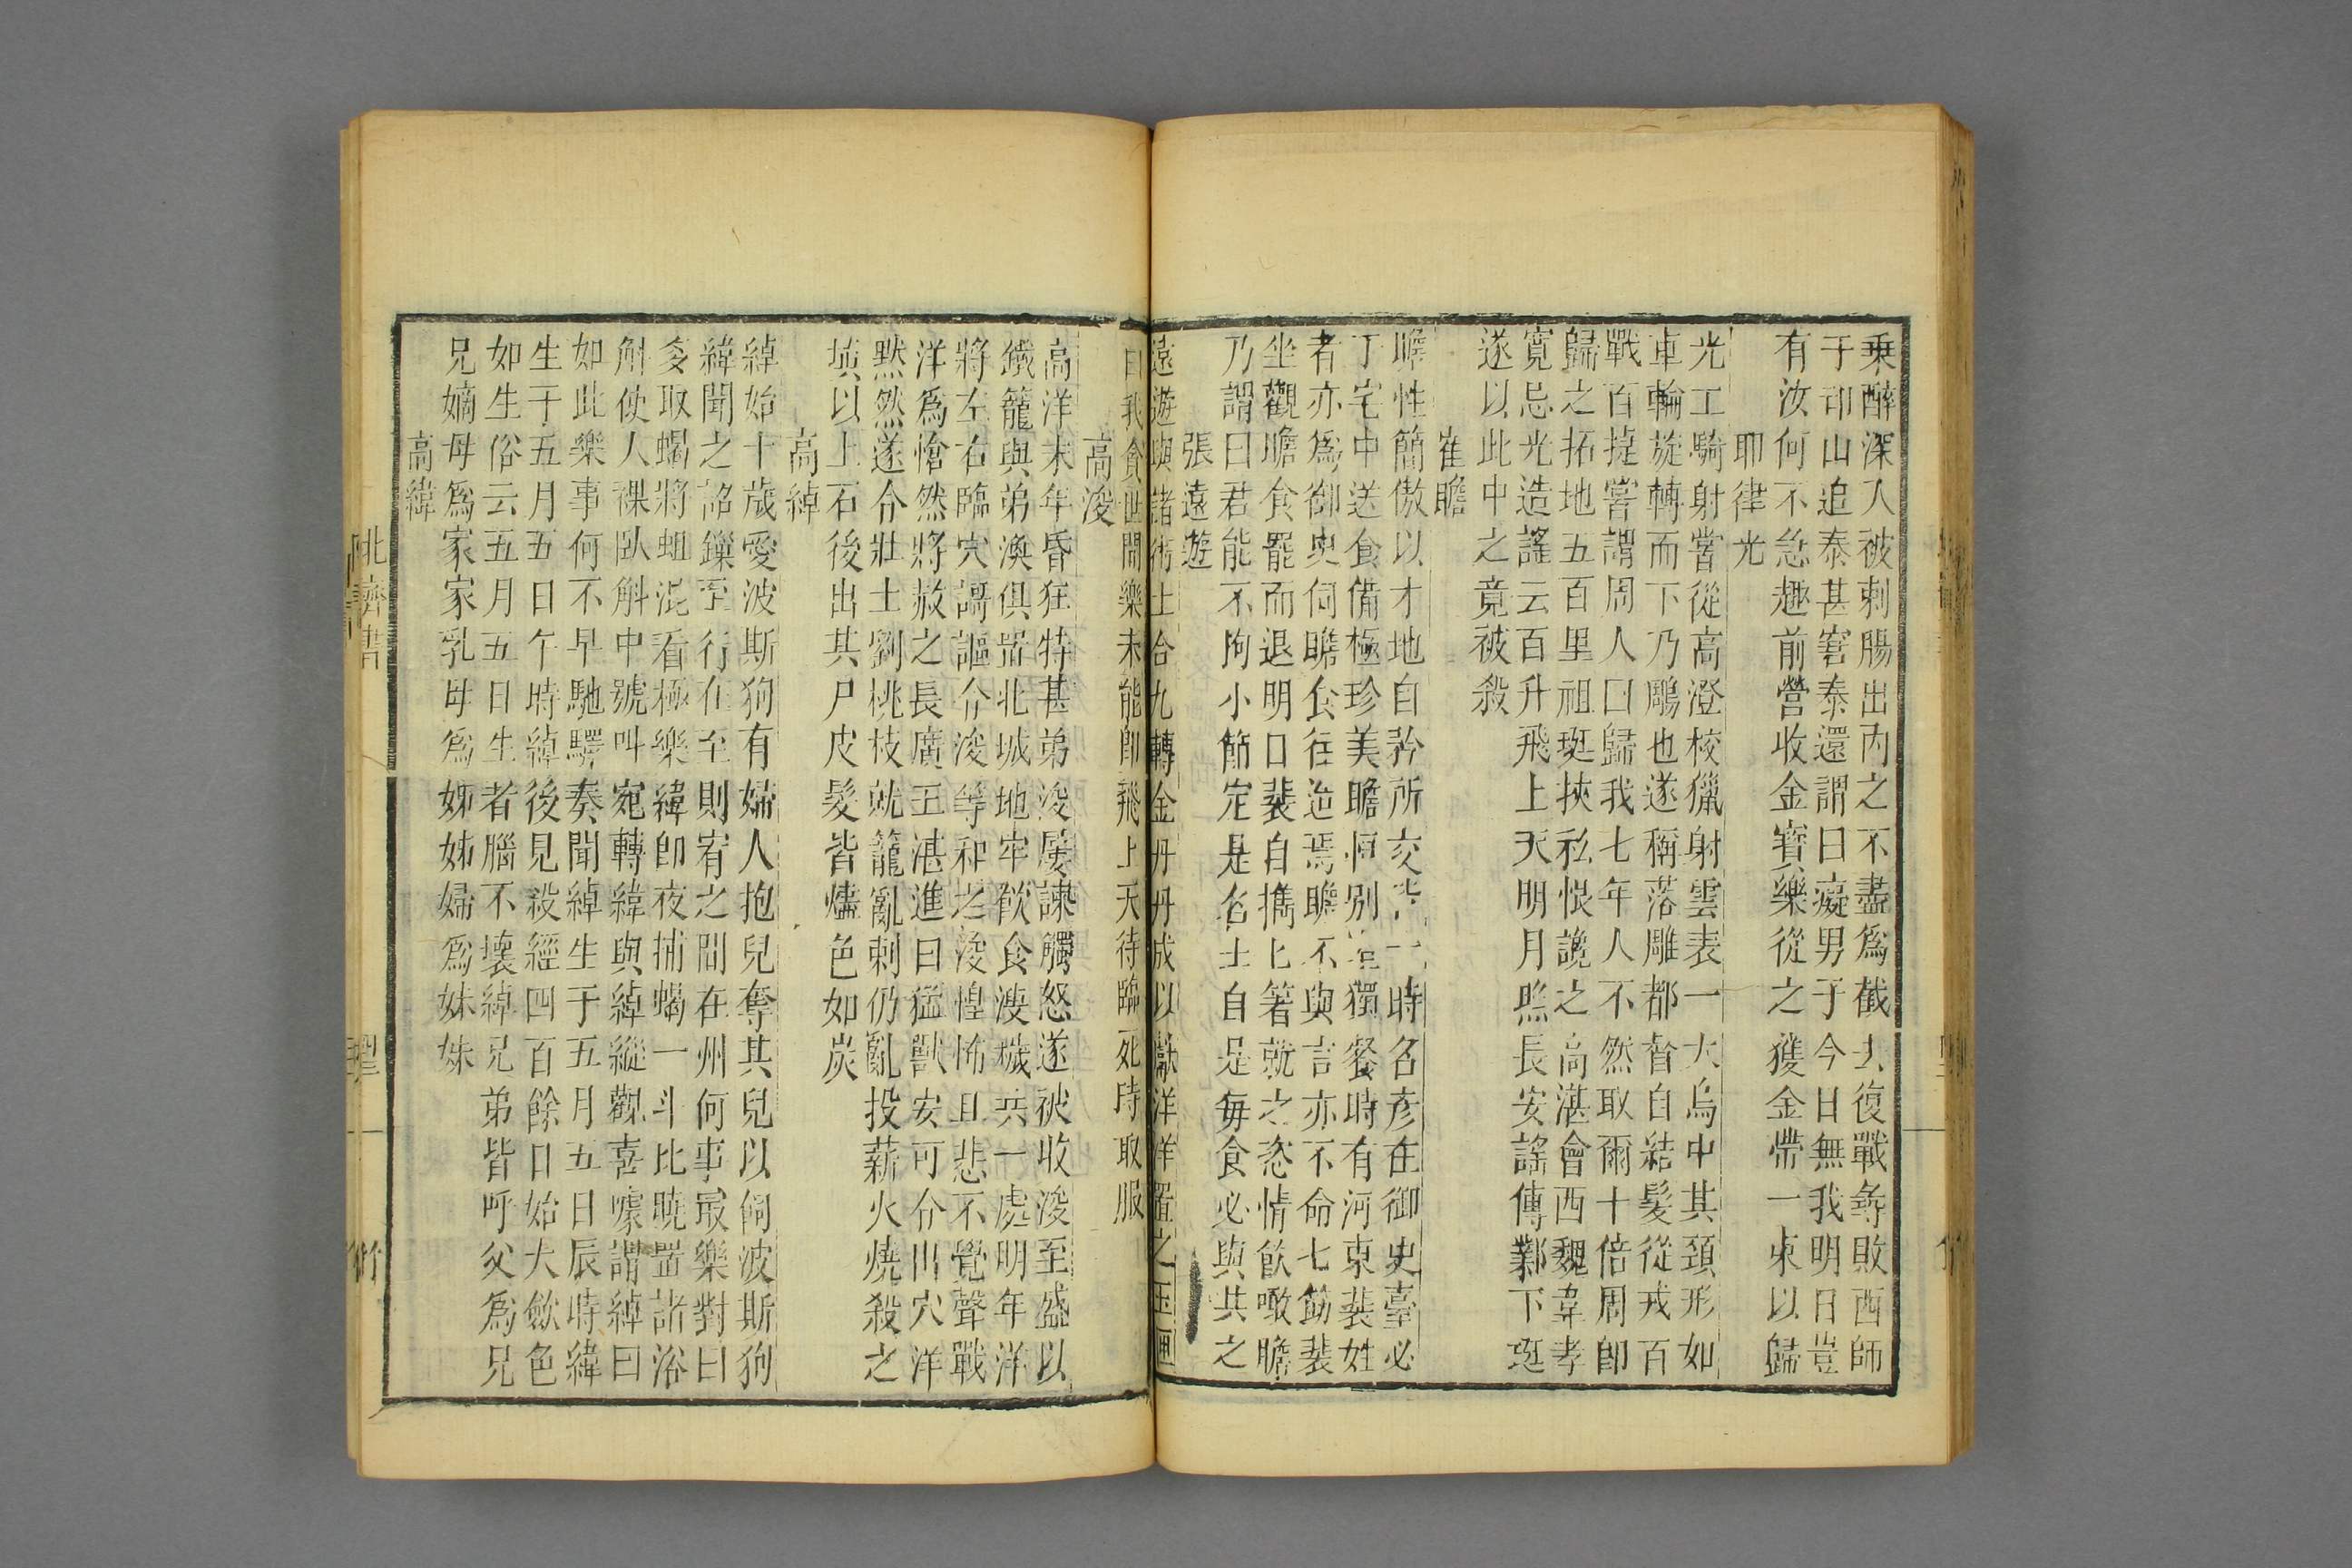 乗醉深入被刺膓出內之不盡爲截去復戰尋敗西師
于邙山追泰甚窘泰還謂曰癡男于今日無我明日豈
有汝何不急趣前營收金寶樂從之獲金帶一束以歸
耶律光
光工騎射嘗從高澄校獵射雲表一大烏中其頚形如
車輪旋轉而下乃鵰也遂稱落雕都督自結髮從戎百
戰百捷嘗謂周人曰歸我七年人不然取爾十倍周卽
歸之拓地五百里祖珽挾私恨讒之高湛會西魏韋孝
寛忌光造謠云百升飛上天明月照長安謠傳鄴下珽
遂以此中之竟被殺
崔瞻
瞻性簡傲以才地自矜所交皆一時名彥在御史臺必
于宅中送食備極珍美瞻恒別室獨餐時有河東裴姓
者亦爲御史伺瞻食往造焉瞻不與言亦不命匕筯裴
坐觀瞻食罷而退明日裴自攜匕箸就之恣情飲噉瞻
乃謂曰君能不拘小節定是名士自是毎食必與共之
張遠遊
遠遊與諸術士合九轉金丹丹成以獻洋洋置之玉匣
曰我貪世間樂未能卽飛上天待臨死時取服
高浚
高洋末年昏狂特甚弟浚屢諫觸怒遂被收浚至盛以
鐵籠與弟渙俱置北城地牢飲食溲穢共一處明年洋
將左右臨穴謌謳令浚等和之浚惶怖且悲不覺聲戰
洋爲愴然將赦之長廣王湛進曰猛獸安可令出穴洋
黙然遂令壯士劉桃枝就籠亂刺仍亂投薪火燒殺之
塡以上石後出其尸皮髮皆燼色如炭
高綽
綽始十歲愛波斯狗有婦人抱兒奪其兒以飼波斯狗
緯聞之詔鏁至行在至則宥之問在州何事最樂對曰
多取蝎將蛆混看極樂緯卽夜捕蝎一斗比曉置諸浴
斛使人裸臥斛中號叫宛轉緯與綽縱觀喜噱謂綽曰
如此樂事何不早馳驛奏聞綽生于五月五日辰時緯
生于五月五日午時綽後見殺經四百餘日始大斂色
如生俗云五月五日生者腦不壞綽兄弟皆呼父爲兄
兄嫡母爲家家乳母爲姊姊婦爲妹妹
高緯
北齊書